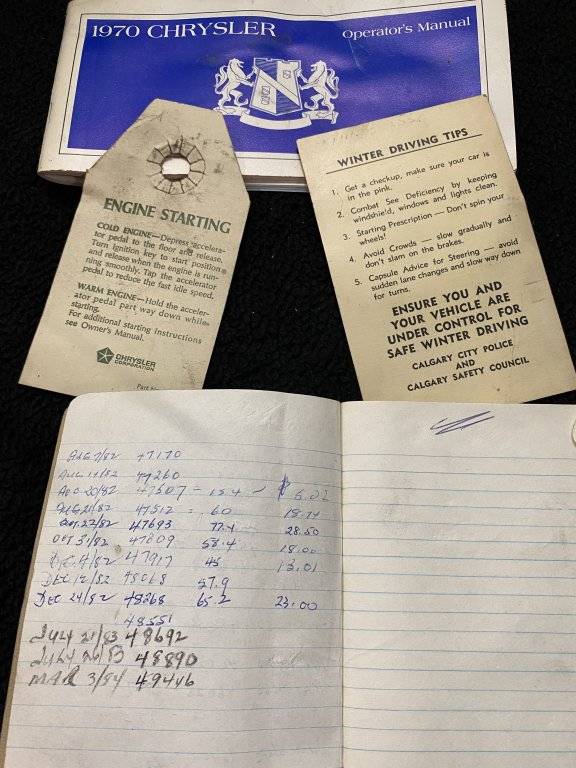 1970 CHRYSLER Operator's Manual
ENGINE STARTING
COLD ENGINE—Depress accelera-
tor pedal to the floor and release.
Turn ignition key to start position
and release when the engine is run-
ning smoothly. Tap the accelerator
pedal to reduce the fast idle speed.
WARM ENGINE—Hold the acceler-
ator pedal part way down while
starting.
For additional starting instructions
see Owner's Manual.
CHRYSLER
CORPORATION
Part
WINTER DRIVING TIPS
1. Get a checkup, make sure your car is
in the pink.
2. Combat See Deficiency by keeping
windshield, windows and lights clean.
3. Starting Prescription — Don't spin your
wheels!
4. Avoid Crowds — slow gradually and
don't slam on the brakes.
5. Capsule Advice for Steering — avoid
sudden lane changes and slow way down
for turns.
ENSURE YOU AND
YOUR VEHICLE ARE
UNDER CONTROL FOR
SAFE WINTER DRIVING
CALGARY CITY POLICE
AND
CALGARY SAFETY COUNCIL
AUG 7/82 47170
AUG 14/82 47260
AUG 20/82 47507 - 15.4 - $ 6.02
AUG 21/82 47512 = 60
OCT 22/82 47693 77.4 28.50
OCT 31/82 47809 53.4 18.00
DEC 4/82 47917 45 13.01
DEC 12/82 48068 57.9
DEC 24/82 48268 65.2 23.00
48551
JULY 21/83 48692
JULY 48890
MAR 3/84 49446